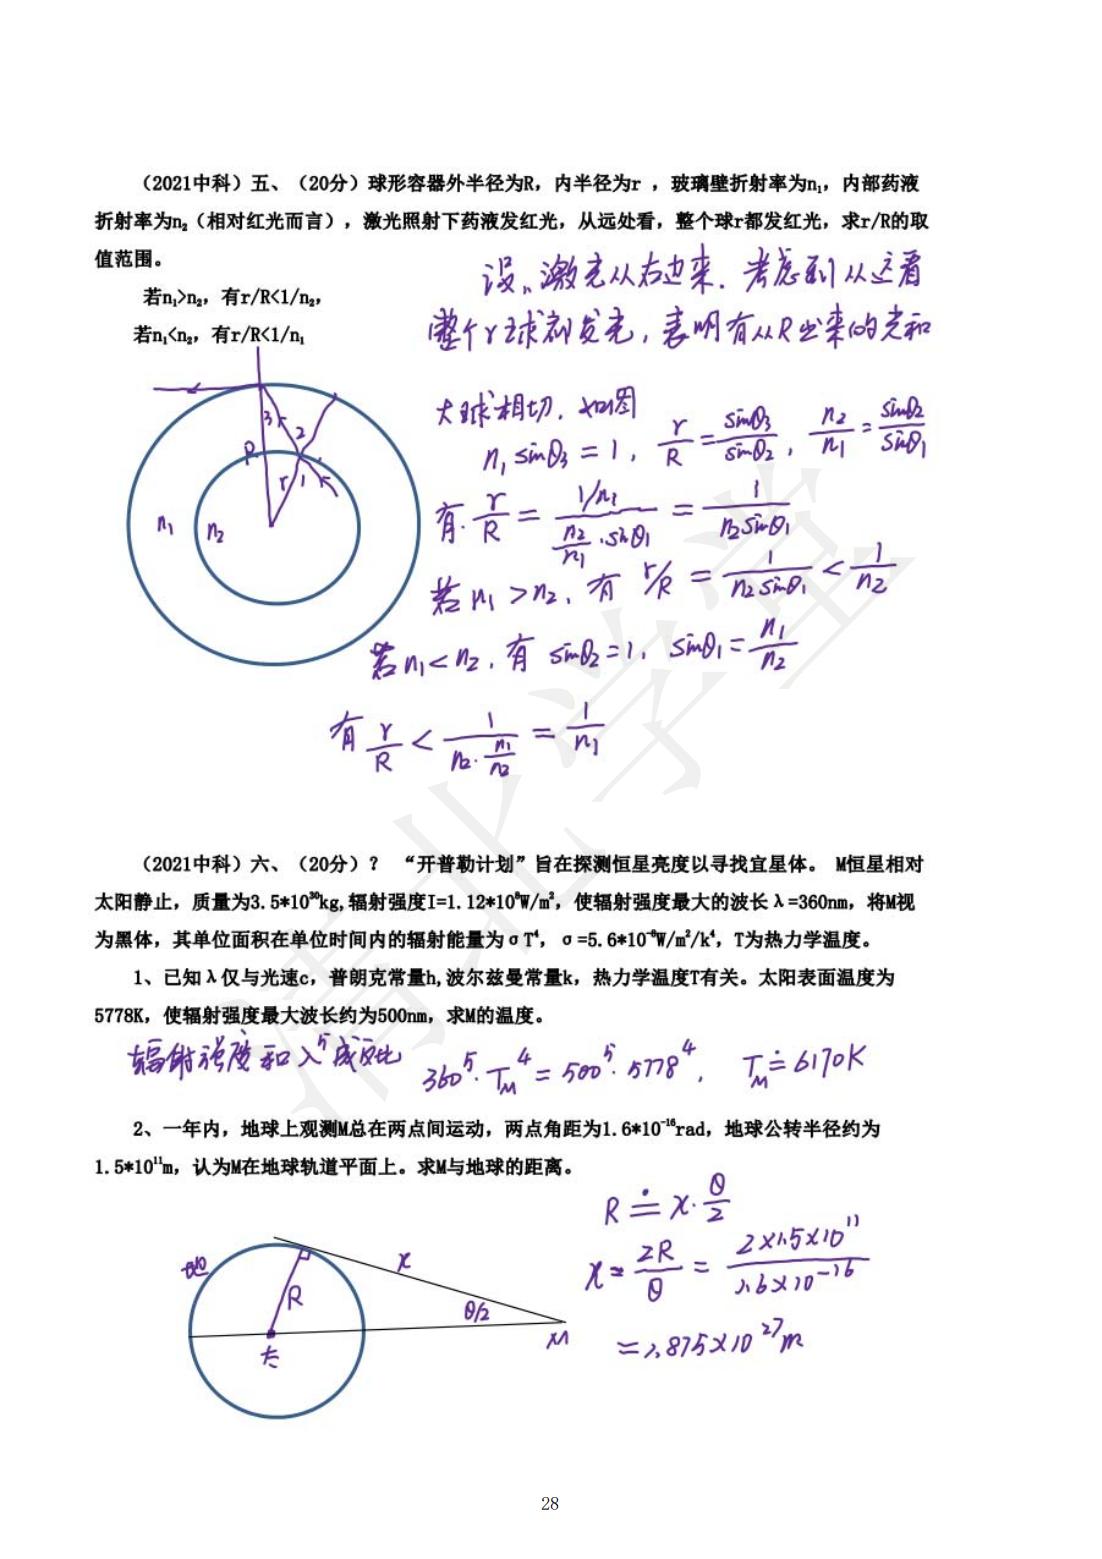 （2021中科）五、（20分）球形容器外半径为R，内半径为r ，玻璃壁折射率为n₁，内部药液
折射率为n₂（相对红光而言），激光照射下药液发红光，从远处看，整个球r都发红光，求r/R的取
值范围。
设、激光从右边来．考虑到从左看
若n₁>n₂，有r/R<1/n₂，
整个r球都发光，表明有从R出来的光和
若n₁<n₂，有r/R<1/n₁
大球相切．如图
n₁ sinθ₃ = 1， r/R = sinθ₃/sinθ₂， n₂/n₁ = sinθ₂/sinθ₁
3
2
R
r
1
n₁
n₂
有．r/R = (1/n₁)/(n₂/n₁ · sinθ₁) = 1/(n₂sinθ₁)
若n₁ > n₂，有 r/R = 1/(n₂sinθ₁) < 1/n₂
若n₁ < n₂，有 sinθ₂ = 1， sinθ₁ = n₁/n₂
有 r/R < 1/(n₂ · n₁/n₂) = 1/n₁
（2021中科）六、（20分）？ “开普勒计划”旨在探测恒星亮度以寻找宜星体。 M恒星相对
太阳静止，质量为3.5*10³⁰kg,辐射强度I=1.12*10⁸W/m²，使辐射强度最大的波长λ=360nm，将M视
为黑体，其单位面积在单位时间内的辐射能量为σT⁴，σ=5.6*10⁻⁸W/m²/k⁴，T为热力学温度。
1、已知λ仅与光速c，普朗克常量h,波尔兹曼常量k，热力学温度T有关。太阳表面温度为
5778K，使辐射强度最大波长约为500nm，求M的温度。
辐射强度和λ⁵成反比 360⁵·T_M⁴ = 500⁵·5778⁴， T_M ≐ 6170K
2、一年内，地球上观测M总在两点间运动，两点角距为1.6*10⁻¹⁶rad，地球公转半径约为
1.5*10¹¹m，认为M在地球轨道平面上。求M与地球的距离。
R ≐ x·θ/2
x = 2R/θ = (2×1.5×10¹¹)/(1.6×10⁻¹⁶)
= 1.875×10²⁷m
地
x
R
θ/2
M
太
清北学堂
28